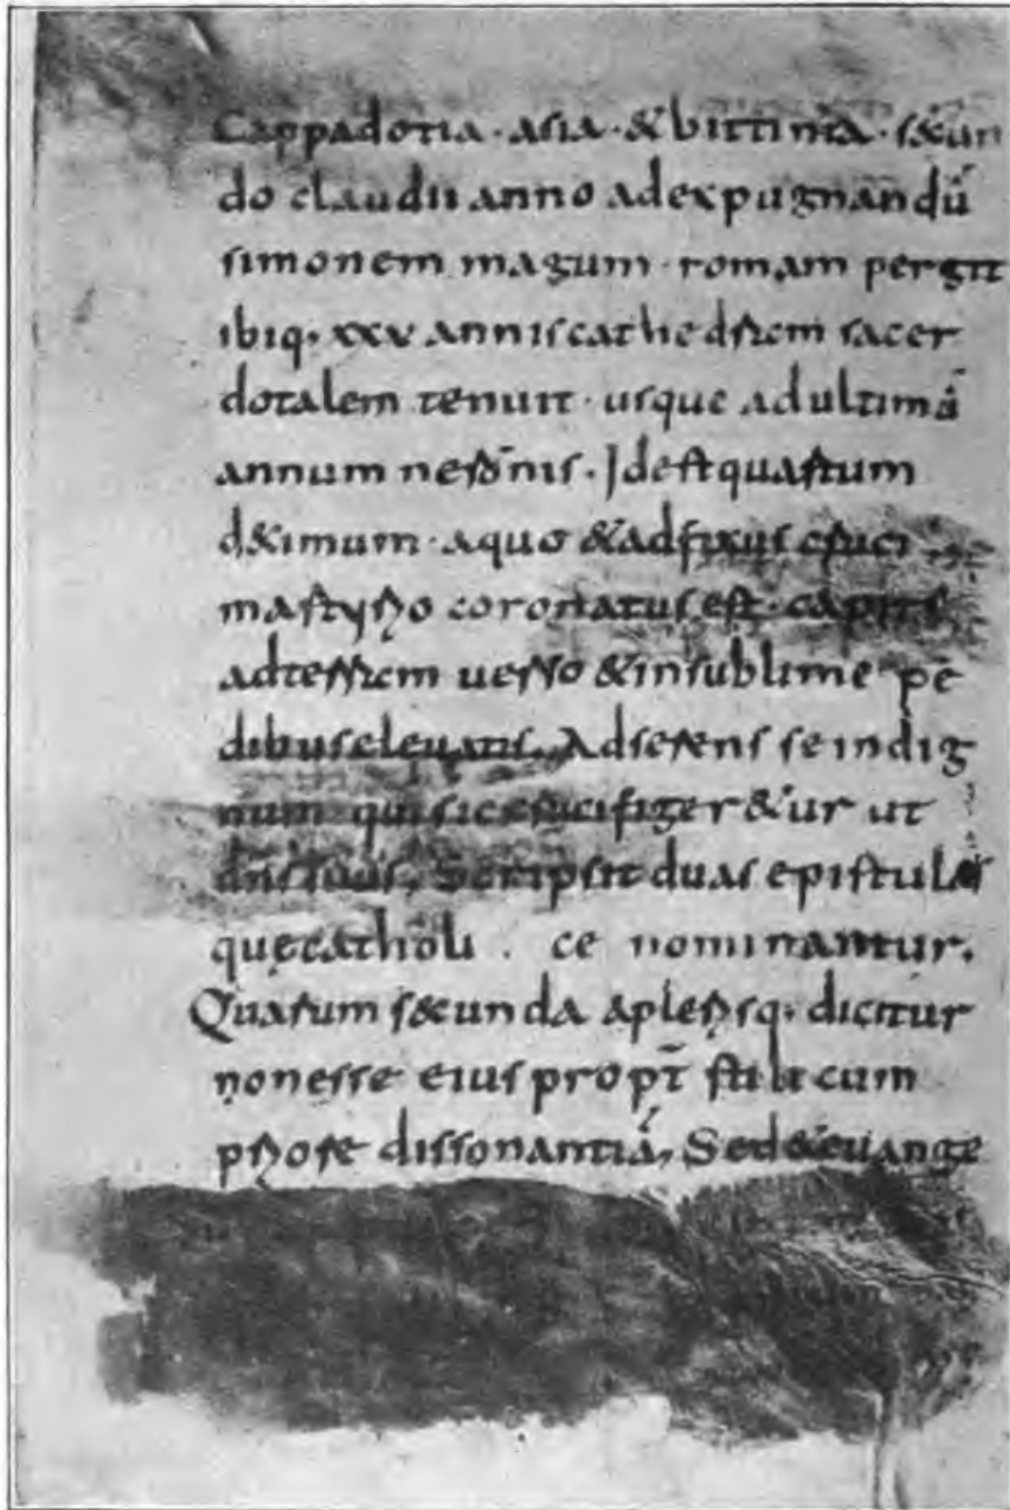 Cappadotia · asia · & bittinia · s&cun
do claudii anno ad expugnandū
simonem magum · romam pergit
ibiq; xxv annis cathedram sacer
dotalem tenuit · usque ad ultimā
annum neronis. Id est quartum
d&imum · a quo & adfixus cruci
martyrio coronatus est · capite
ad terram uerso & in sublime pe
dibus eleuatis. Adserens se indig
num qui sic crucifiger&ur ut
dn̄s suus. Scripsit duas epistulas
quę catholi ce nominantur.
Quarum s&cunda a plerisq; dicitur
non esse eius propt̄ stili cum
priore dissonantiā. Sed & euange